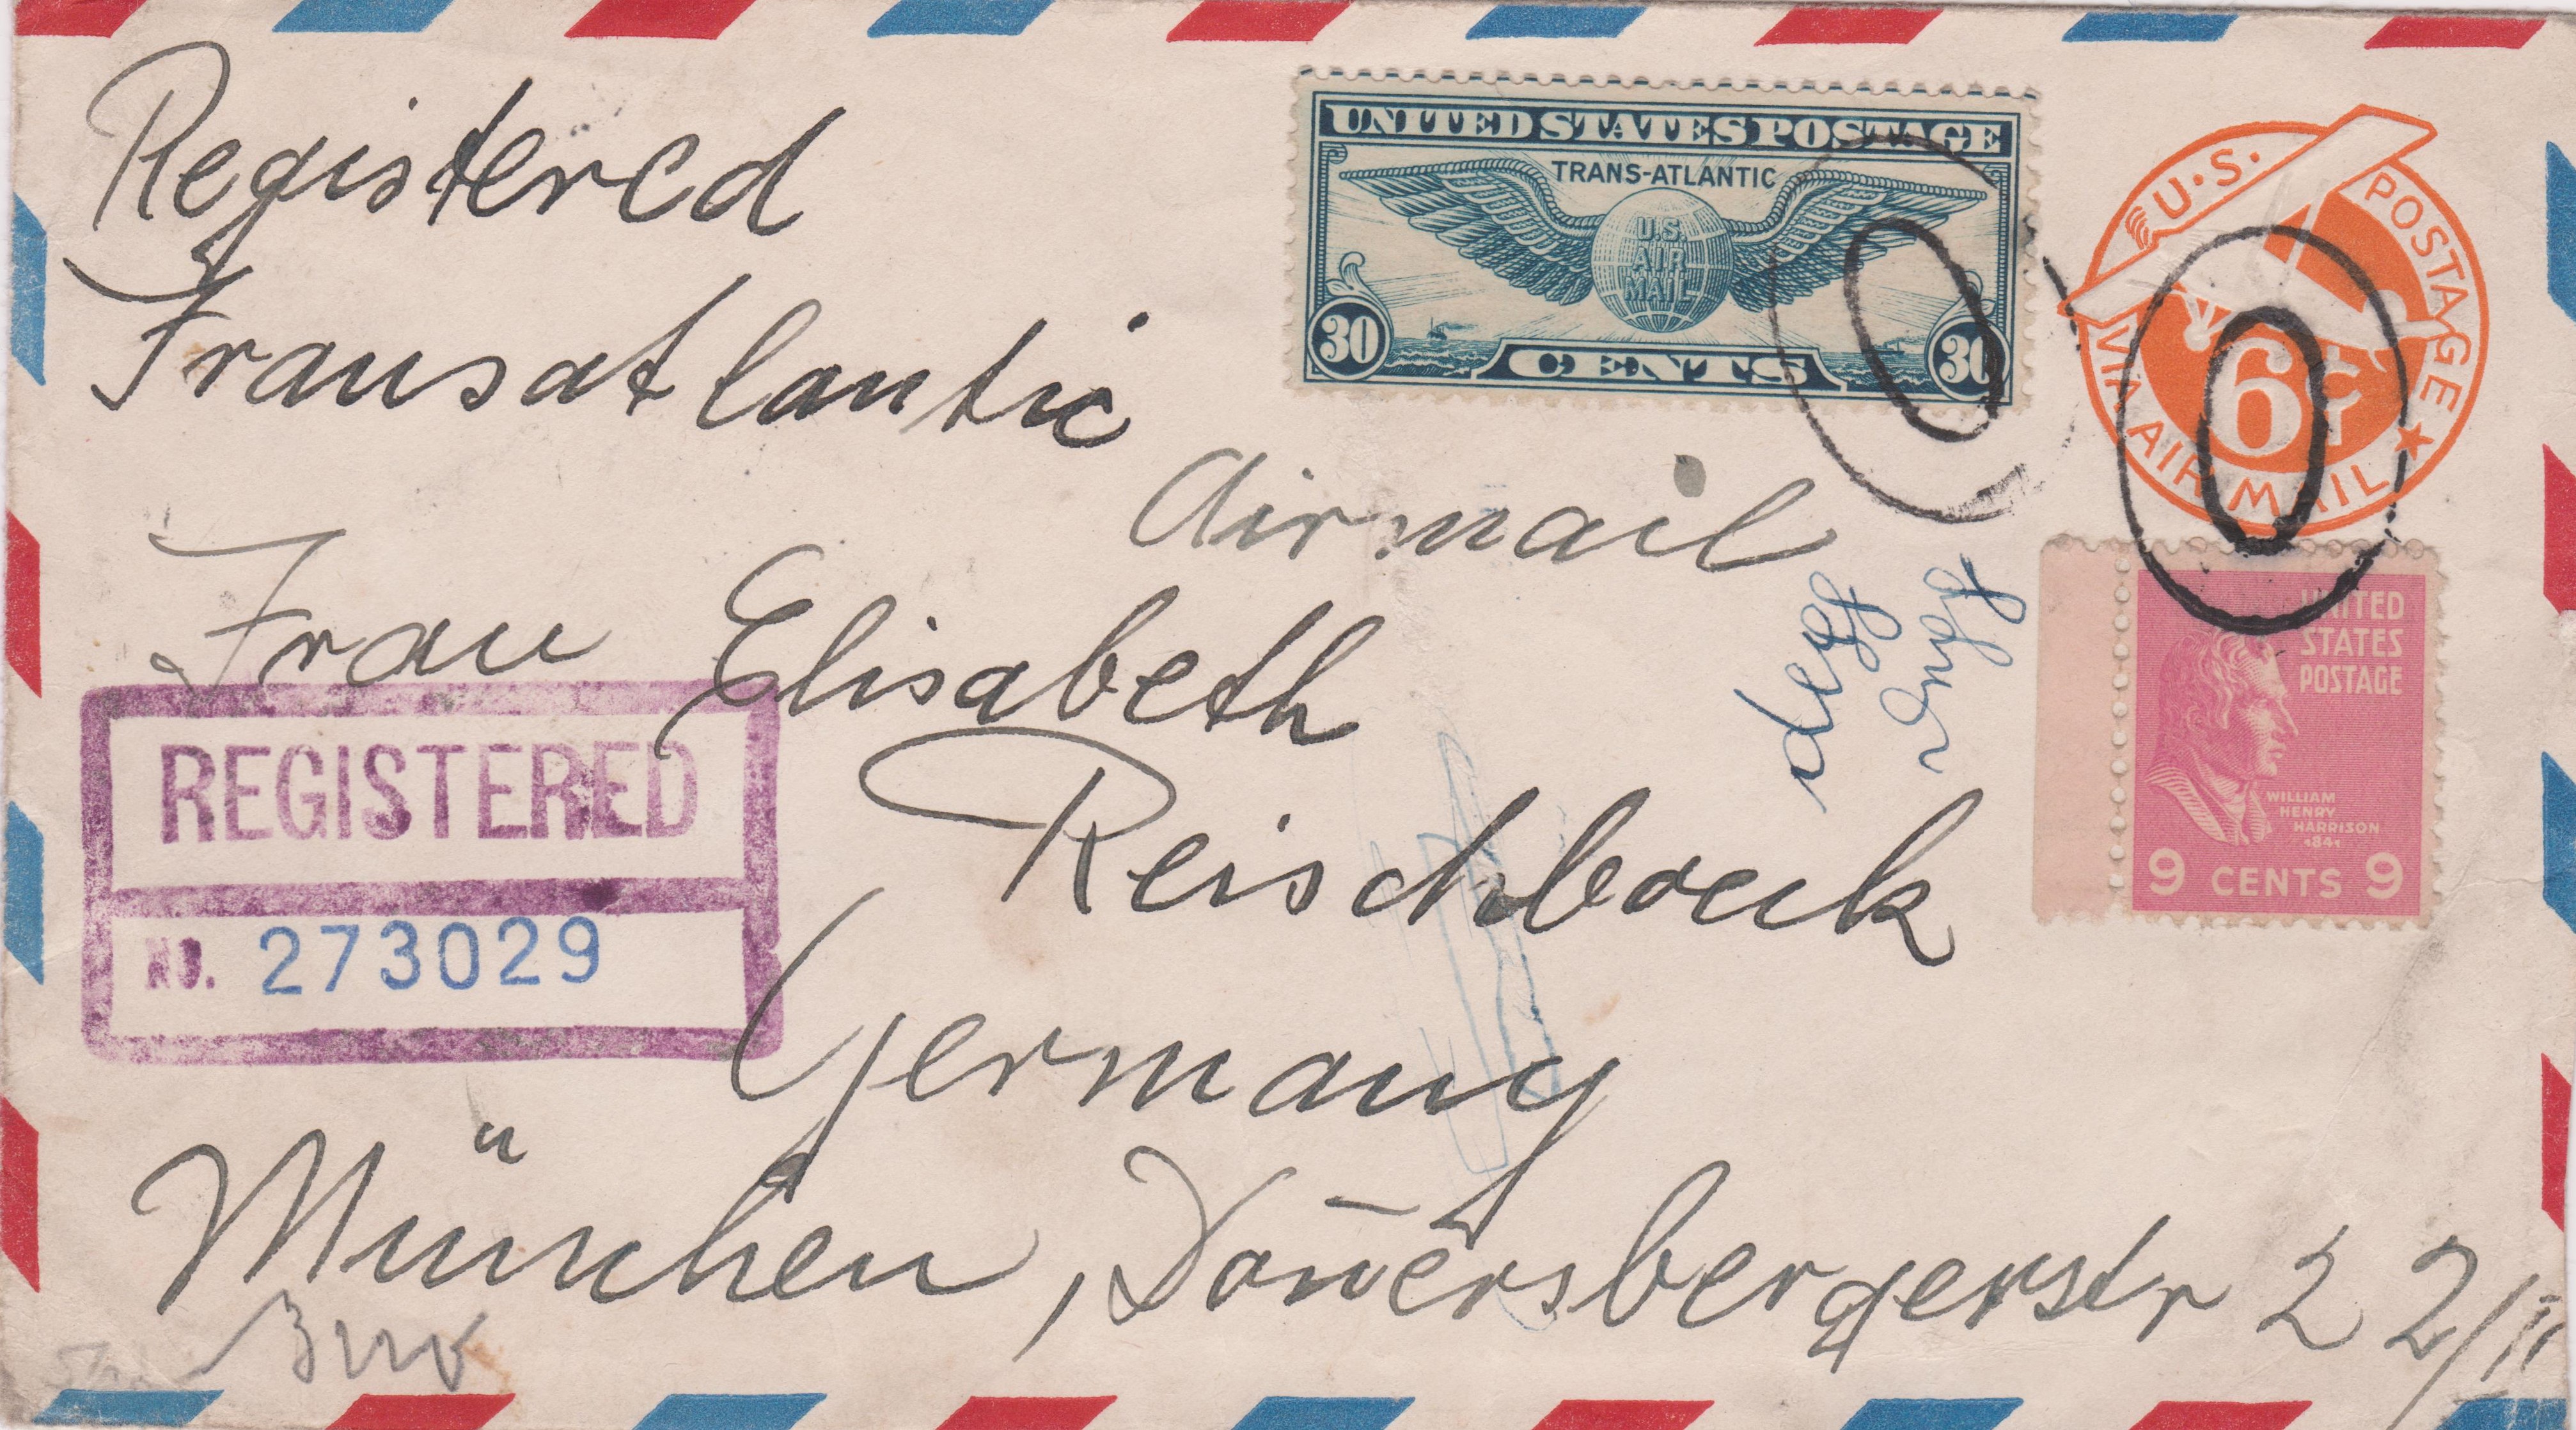 Registered
Transatlantic
Airmail
UNITED STATES POSTAGE
TRANS-ATLANTIC
U.S.
AIR
MAIL
30 CENTS 30
U.S. POSTAGE
6¢
VIA AIR MAIL
Frau Elisabeth
Reischboeck
UNITED
STATES
POSTAGE
WILLIAM
HENRY
HARRISON
1841
9 CENTS 9
REGISTERED
NO. 273029
Germany
München, Donnersbergerstr 22/II